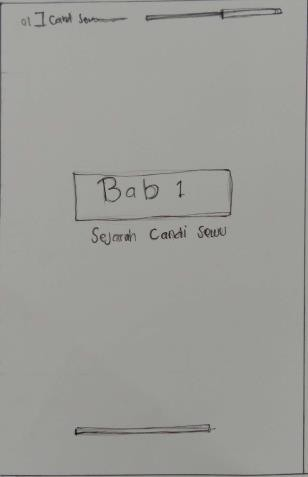 01 ] Candi Sewu
Bab 1
Sejarah Candi Sewu